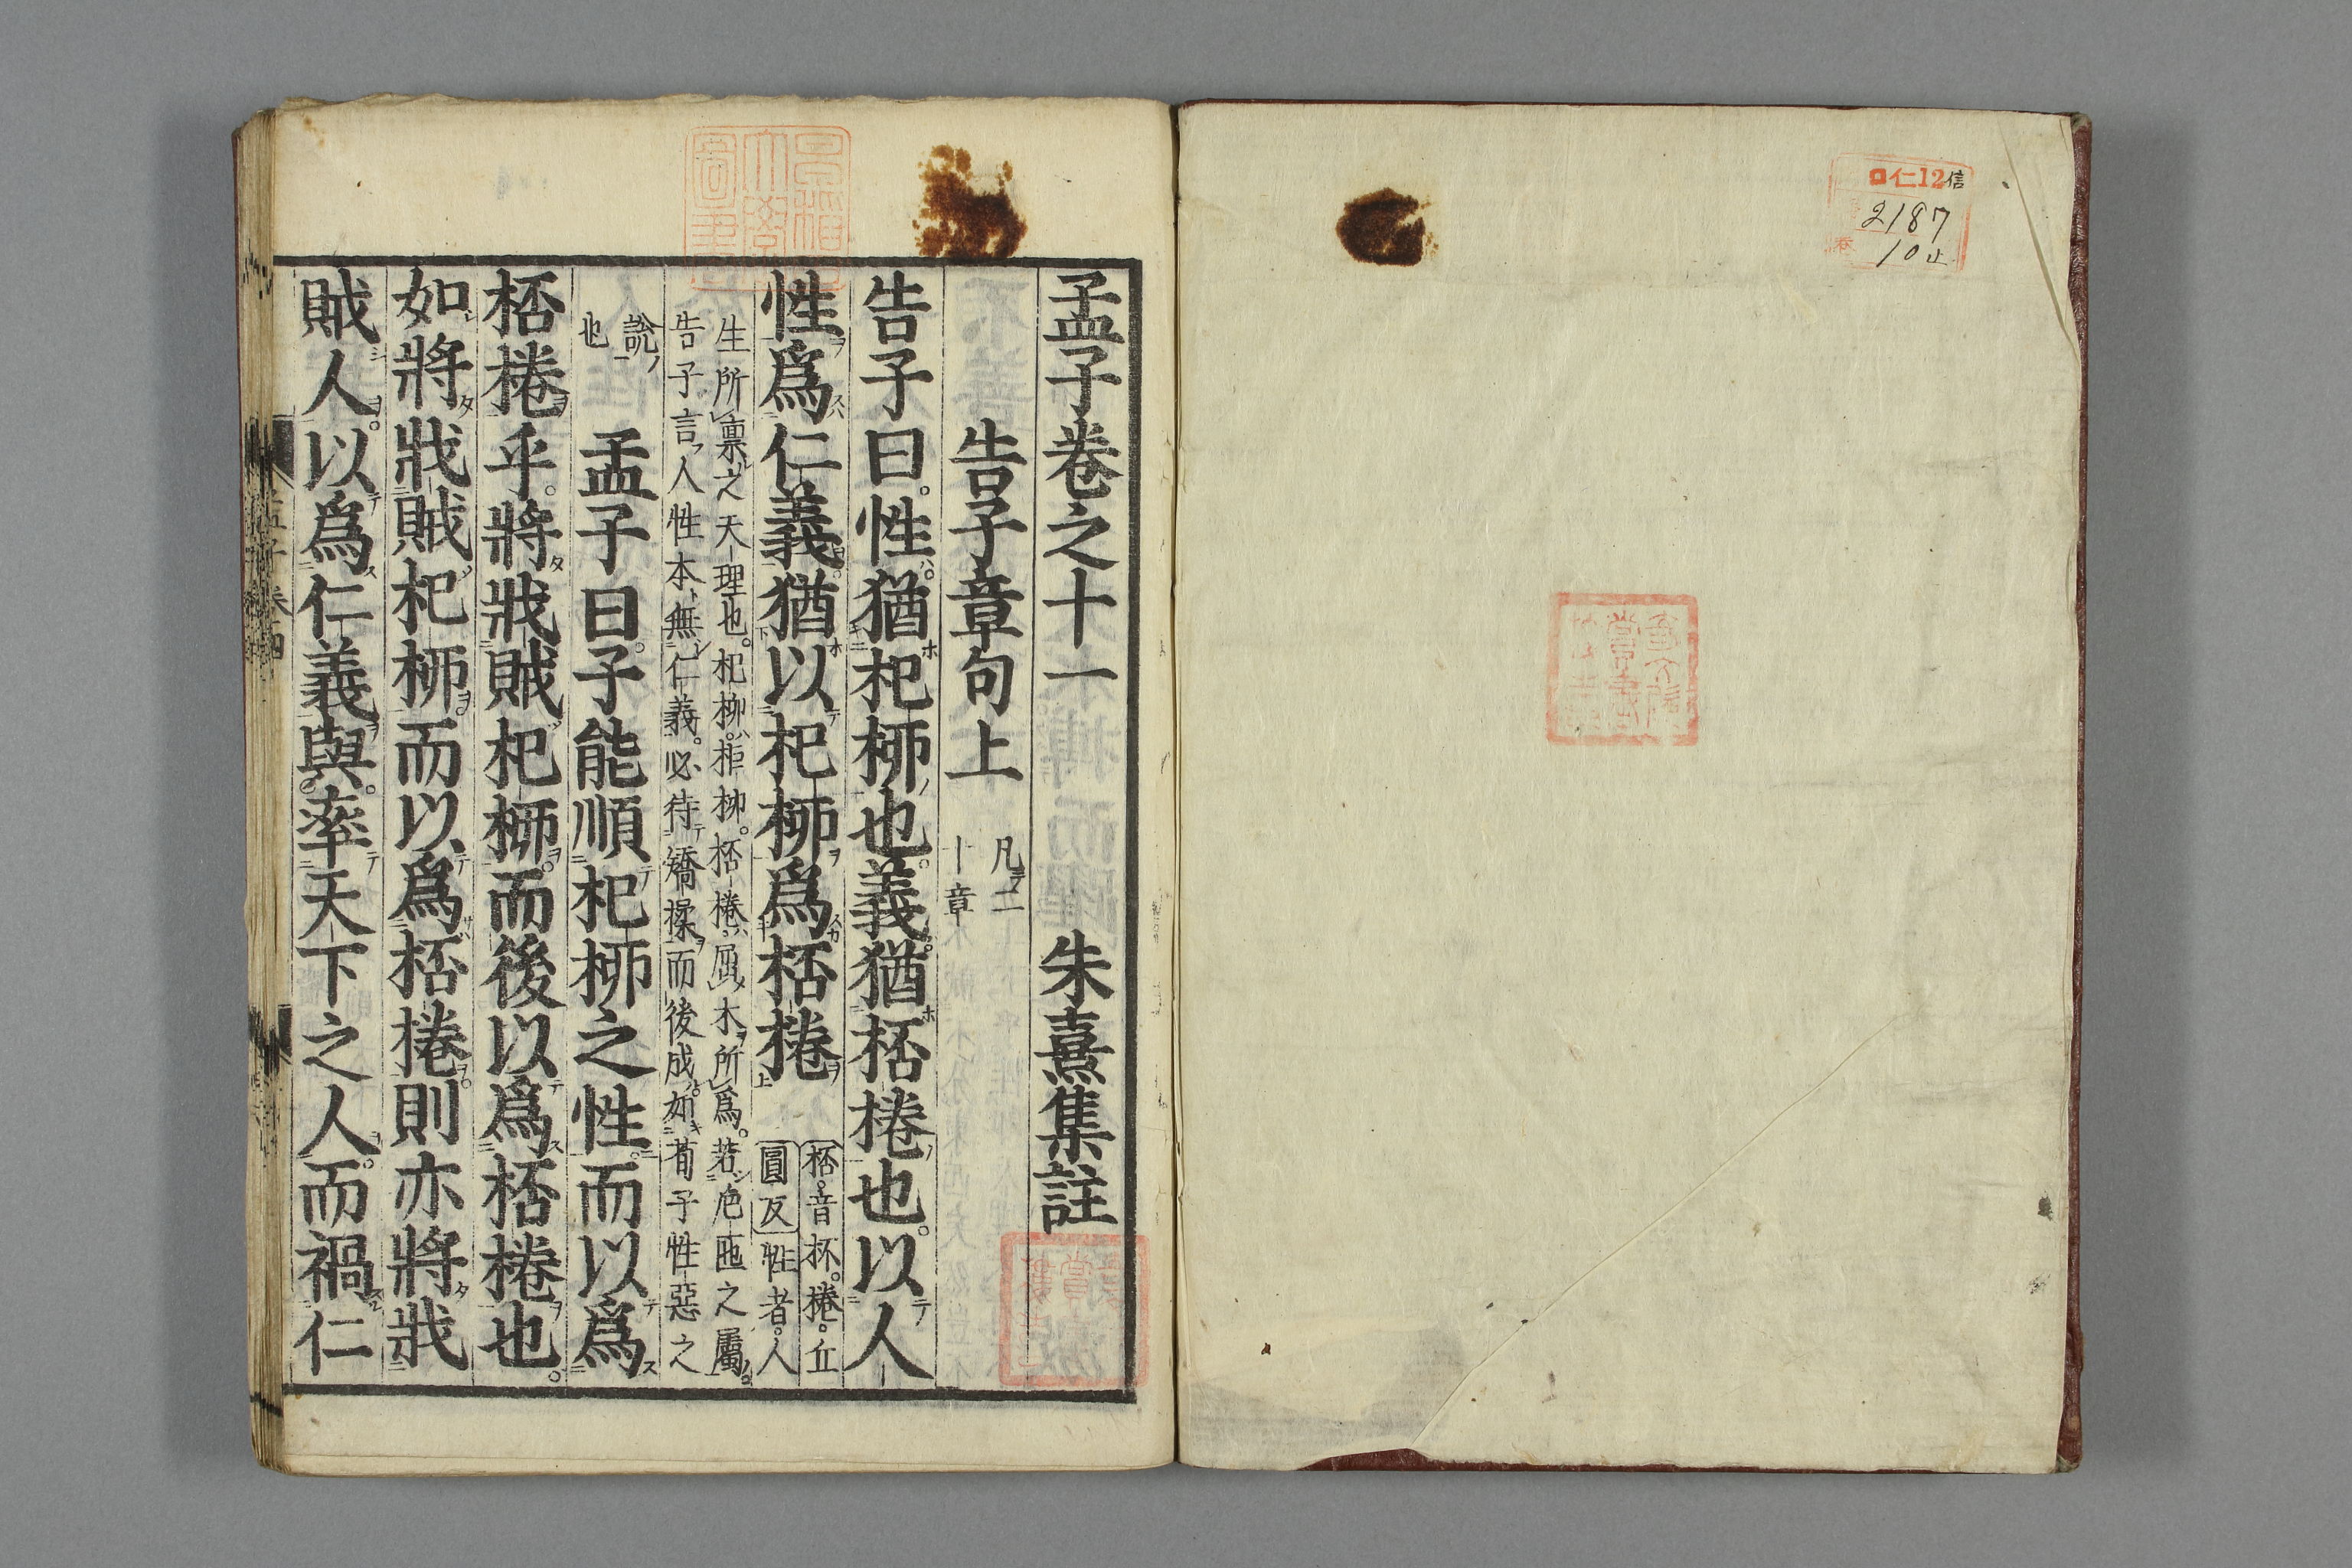 仁12信
2187
10止
孟子卷之十一 朱熹集註
告子章句上 凡二
十章
告子曰。性猶杞柳也。義猶桮棬也。以人
性爲仁義。猶以杞柳爲桮棬 桮。音杯。棬。丘
圓反 性者。人
生所禀之天理也。杞柳。柜柳。桮棬。屈木所爲。若巵匜之屬。
告子言。人性本無仁義。必待矯揉而後成。如荀子性惡之
說
也
孟子曰。子能順杞柳之性。而以爲
桮棬乎。將戕賊杞柳。而後以爲桮棬也。
如將戕賊杞柳。而以爲桮棬。則亦將戕
賊人。以爲仁義與。率天下之人。而禍仁